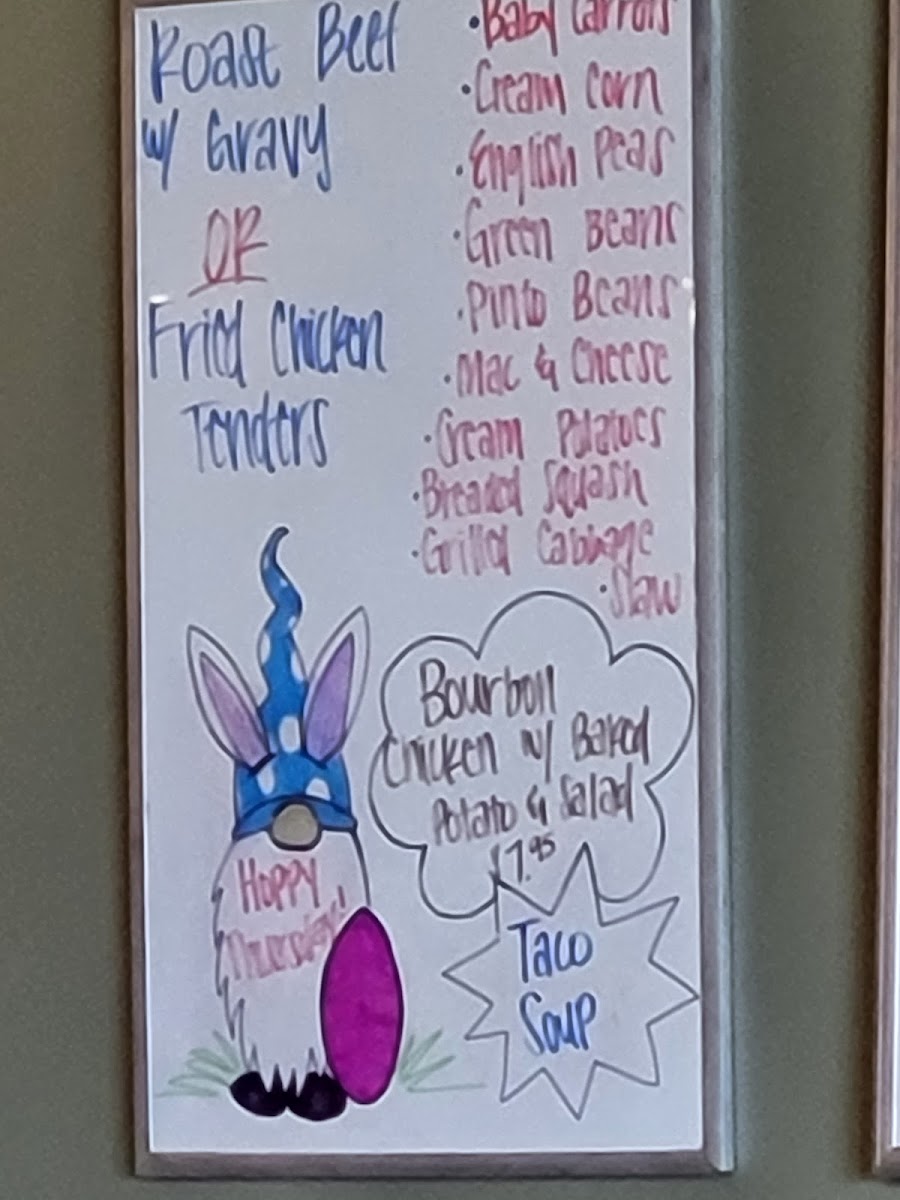 Roast Beef
w/ Gravy
OR
Fried Chicken
Tenders
• Baby Carrots
• Cream Corn
• English Peas
• Green Beans
• Pinto Beans
• Mac & Cheese
• Cream Potatoes
• Breaded Squash
• Grilled Cabbage
• Slaw
Bourbon
Chicken w/ Baked
Potato & Salad
$7.95
Hoppy
Thursday!
Taco
Soup